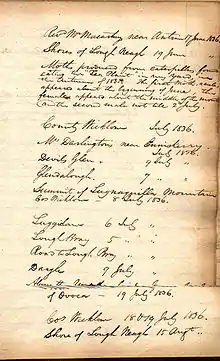 Revd Wm Macartney near Antrim 17 June 1836
Shores of Lough Neagh 19 June "
Moth produced from caterpillar found
eating on the Plant in new Yard,
the autumn of 1835. The first
appears about the beginning of June, the
females appear about the middle of the month
(on the second male not till 2 July).
County Wicklow July 1836.
Mr Darlington near Enniskerry July 1836.
Devils Glen " 7 July "
Glendalough. " 7 " "
Summit of Lugnaquilla Mountain
Cos Wicklow - 8th July 1836.
Luggelaw 6 July "
Lough Bray 5 " "
Road to Lough Bray " "
Dargle 9 July "
of Ovoca - 19 July 1836.
Cos Wicklow 18 & 19 July 1836.
Shore of Lough Neagh 15 Augt "